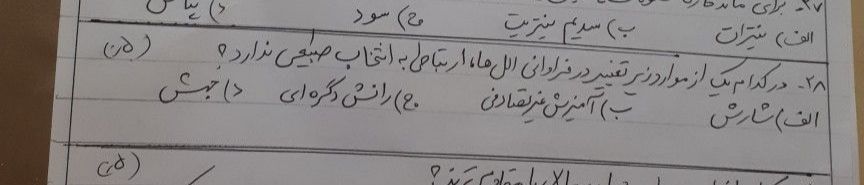 ۲۷- برای ماندگاری
الف) نیترات ب) سدیم نیتریت ج) سود د) پتاس
۲۸- در کدام یک از موارد زیر تغییر در فراوانی الل ها، ارتباطی به انتخاب طبیعی ندارد؟ (۵/۰)
الف) شارش ب) آمیزش غیرتصادفی ج) رانش دگره ای د) جهش
(۵/۰)